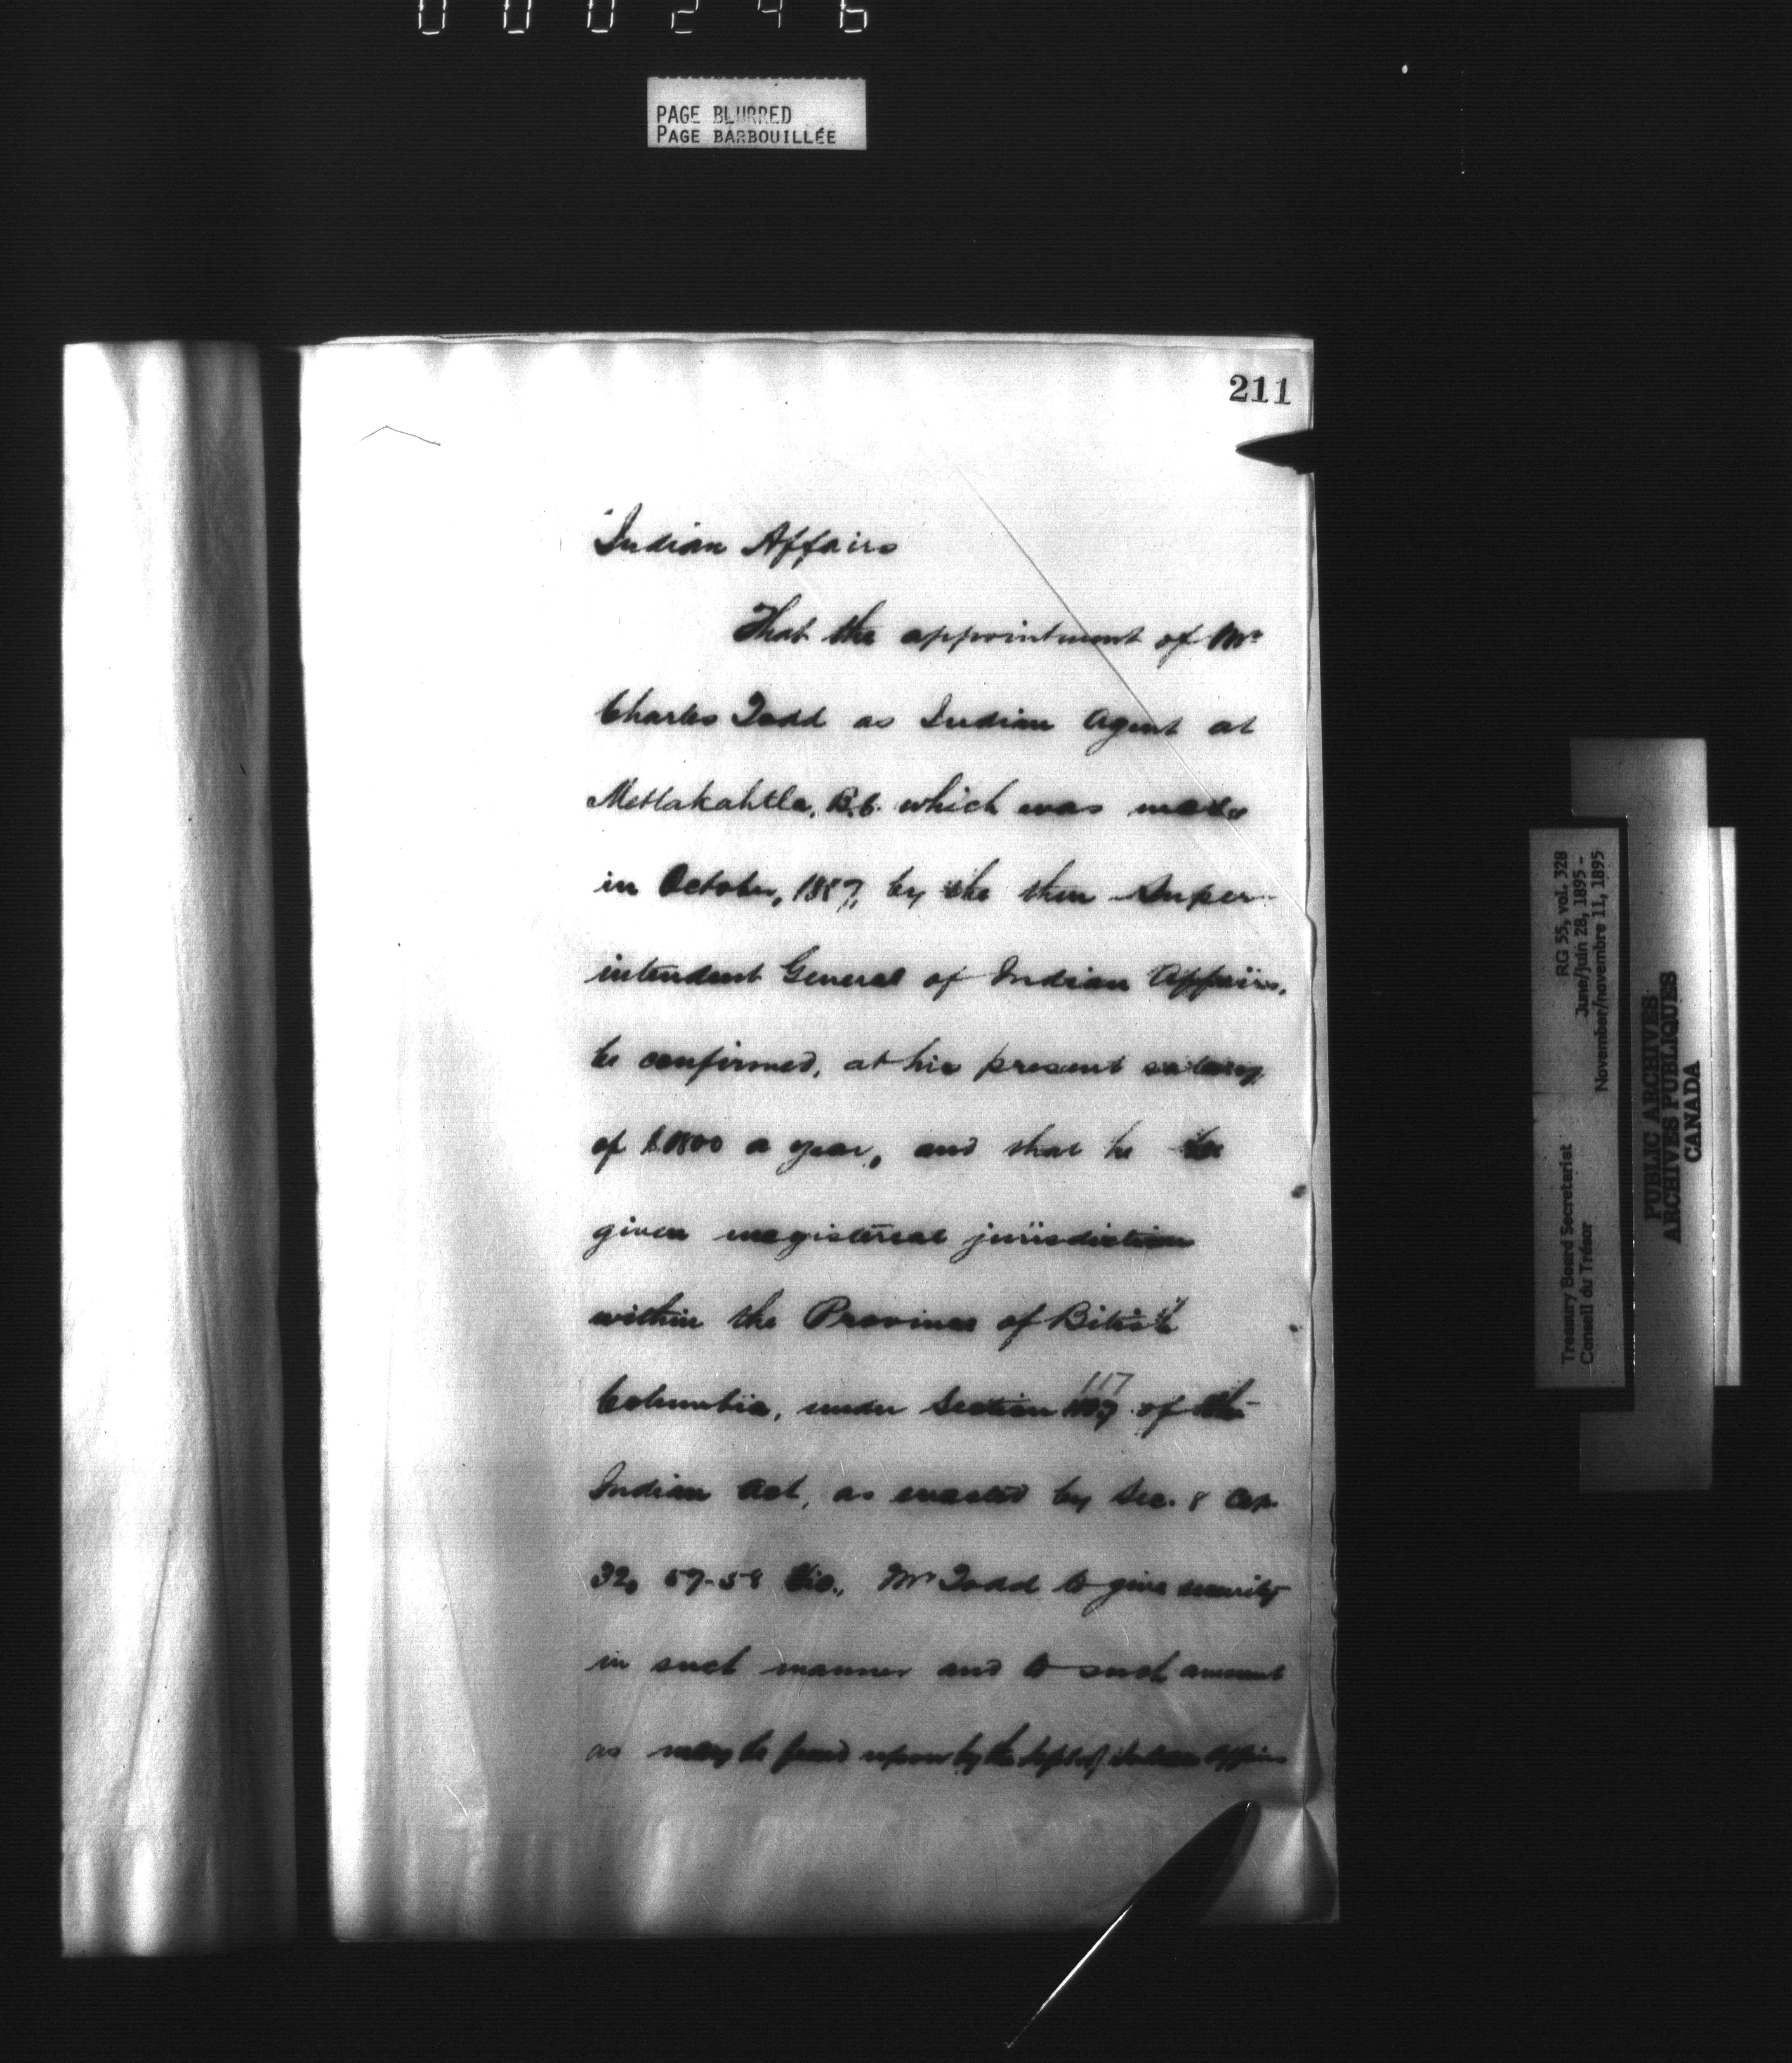 000246
PAGE BLURRED
PAGE BARBOUILLÉE
211
Indian Affairs
That the appointment of Mr
Charles Todd as Indian Agent at
Metlakahtla, B.C. which was made
in October, 1887, by the then Super-
intendent General of Indian Affairs,
be confirmed, at his present salary
of $ a year, and that he be
given magisterial jurisdiction
within the Province of British
Columbia, under Section 117 of the
Indian Act, as enacted by Sec. 8 Cap.
32, 57-58 Vic., Mr Todd to give security
in such manner and to such amount
as may be upon by the Dept of Indian Affairs
RG 55, vol. 328
June/juin 28, 1895 -
November/novembre 11, 1895
Treasury Board Secretariat
Conseil du Trésor
PUBLIC ARCHIVES
ARCHIVES PUBLIQUES
CANADA